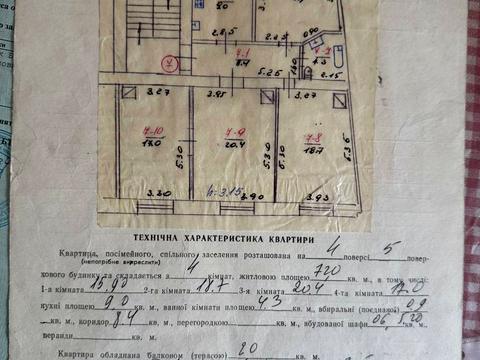 2.85
2.25
0.90
7-1
8.4
1.40
7-2
4.3
5.25
2.15
7
3.27
3.95
3.27
7-10
17.0
5.30
7-9
20.4
5.30
5.30
7-8
18.7
5.35
h-3.15
3.30
3.90
3.93
ТЕХНІЧНА ХАРАКТЕРИСТИКА КВАРТИРИ
Квартира, посімейного, спільного заселення розташована на 4 поверсі 5 повер-
(непотрібне викреслити)
хового будинку та складається з 4 кімнат, житловою площею 720 кв. м., в тому числі
1-а кімната 15.90 2-га кімната 18.7 3-я кімната 20.4 4-та кімната 17.0
кухні площею 9.0 кв. м., ванної кімнати площею 4.3 кв. м., вбиральні (поєднаної) 0.9
кв. м., коридор 8.4 кв. м., перегородкою кв. м., вбудованої шафи 06, 5.20
веранди кв. м.
Квартира обладнана балконом (терасою) 20 кв. м.